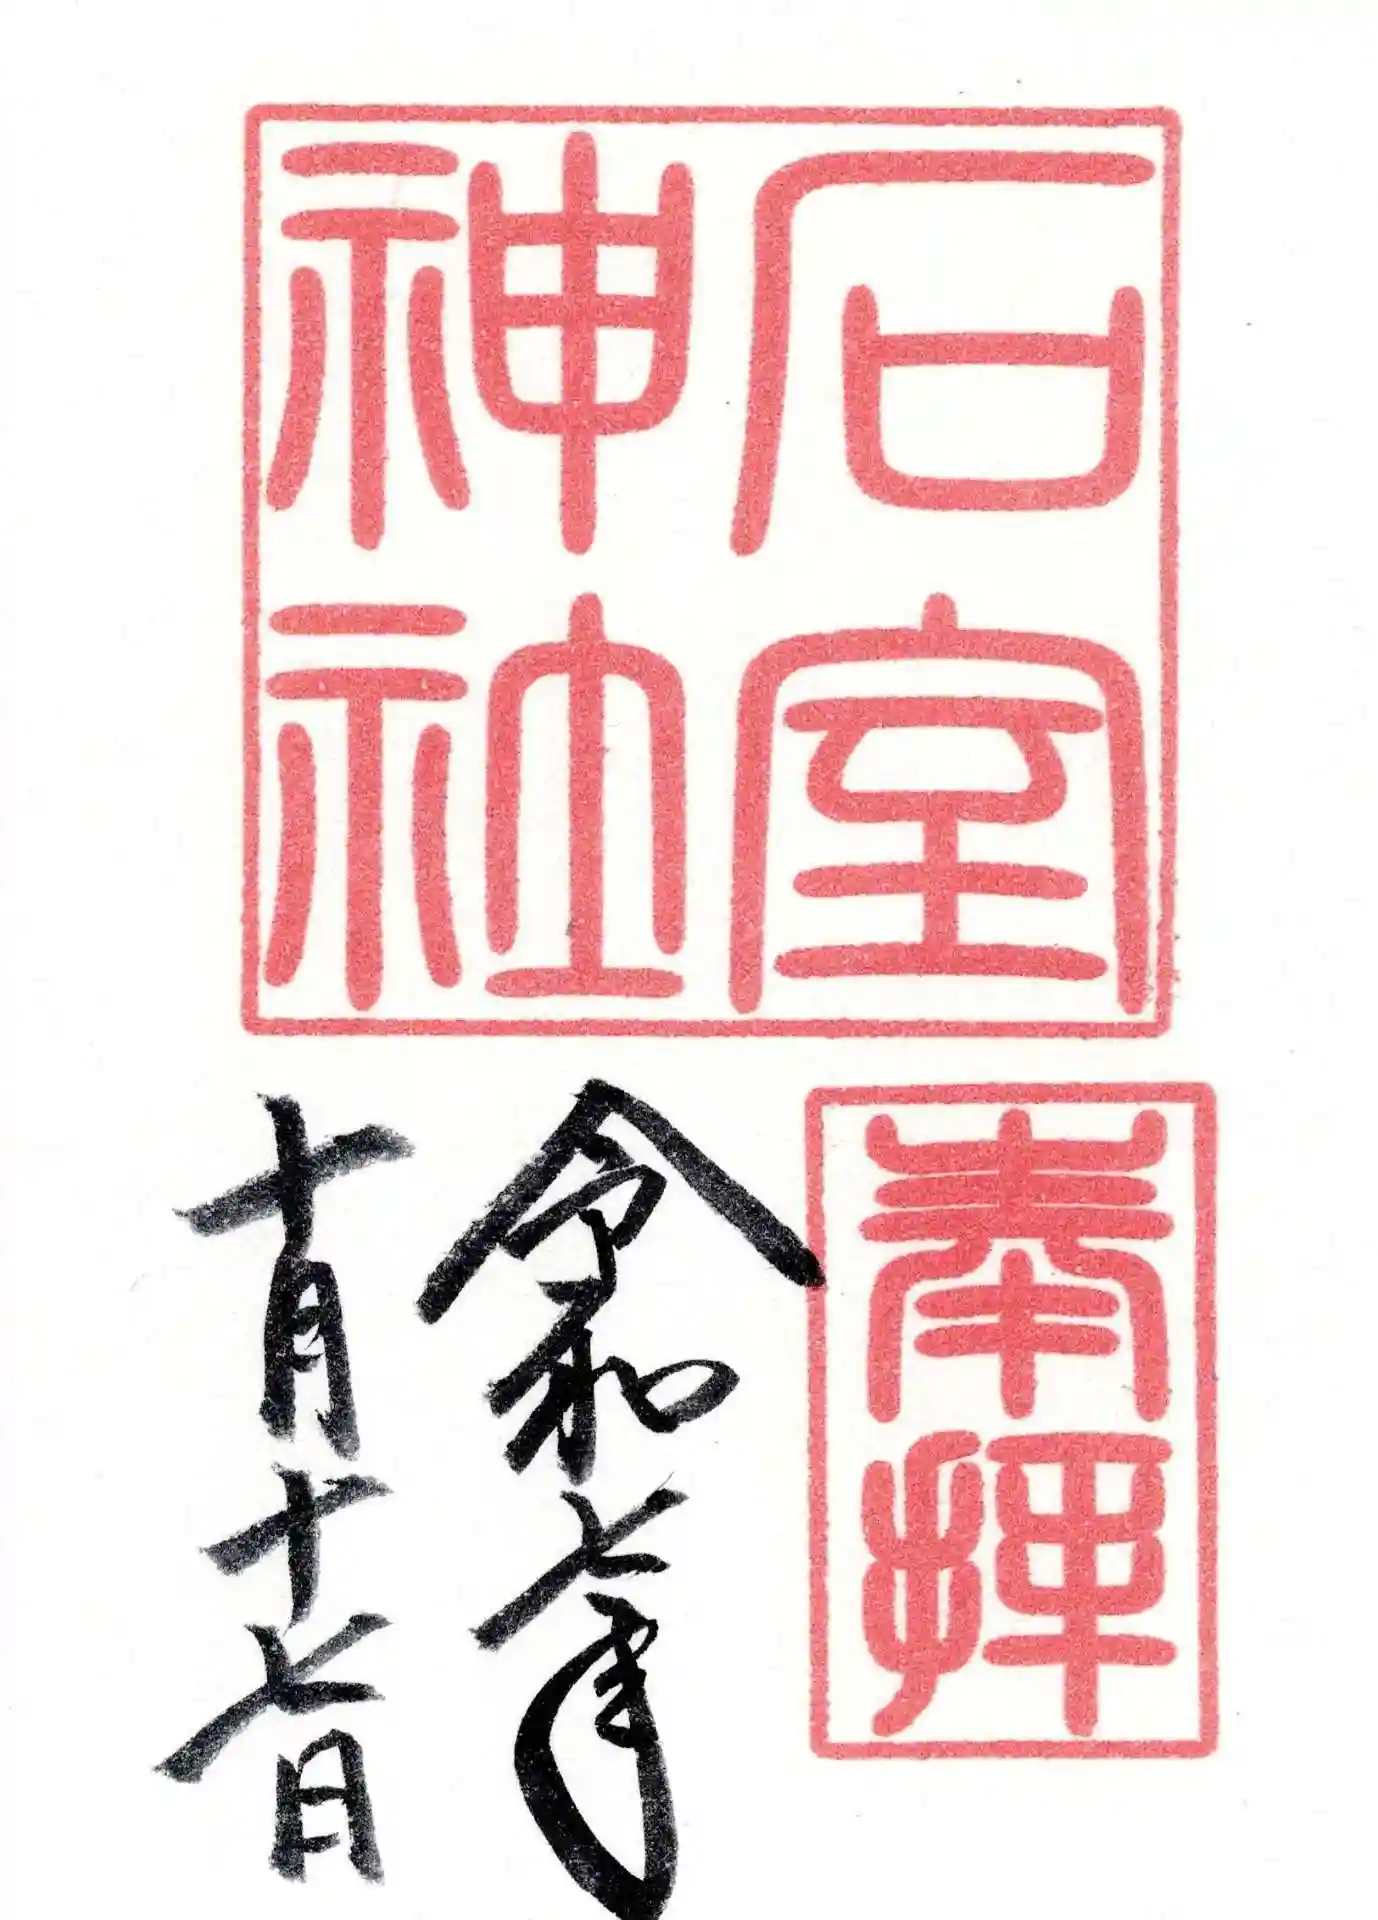 石室
神社
奉拝
令和七年
十月十七日